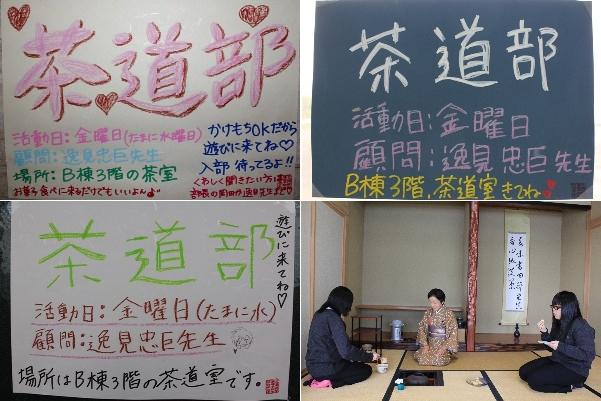 茶道部
活動日：金曜日(たまに水曜日)
顧問：逸見忠臣先生
場所：B棟3階の茶室
お菓子食べに来るだけでもいいよん♪
かけもちOKだから
遊びに来てね♡
入部 待ってるよ!!
くわしく聞きたい方は
部長の岡田か逸見先生
茶道部
活動日：金曜日
顧問：逸見忠臣先生
B棟3階、茶道室きてね!
茶道部
遊びに来てね♡
活動日：金曜日(たまに水)
顧問：逸見忠臣先生
場所はB棟3階の茶道室です。